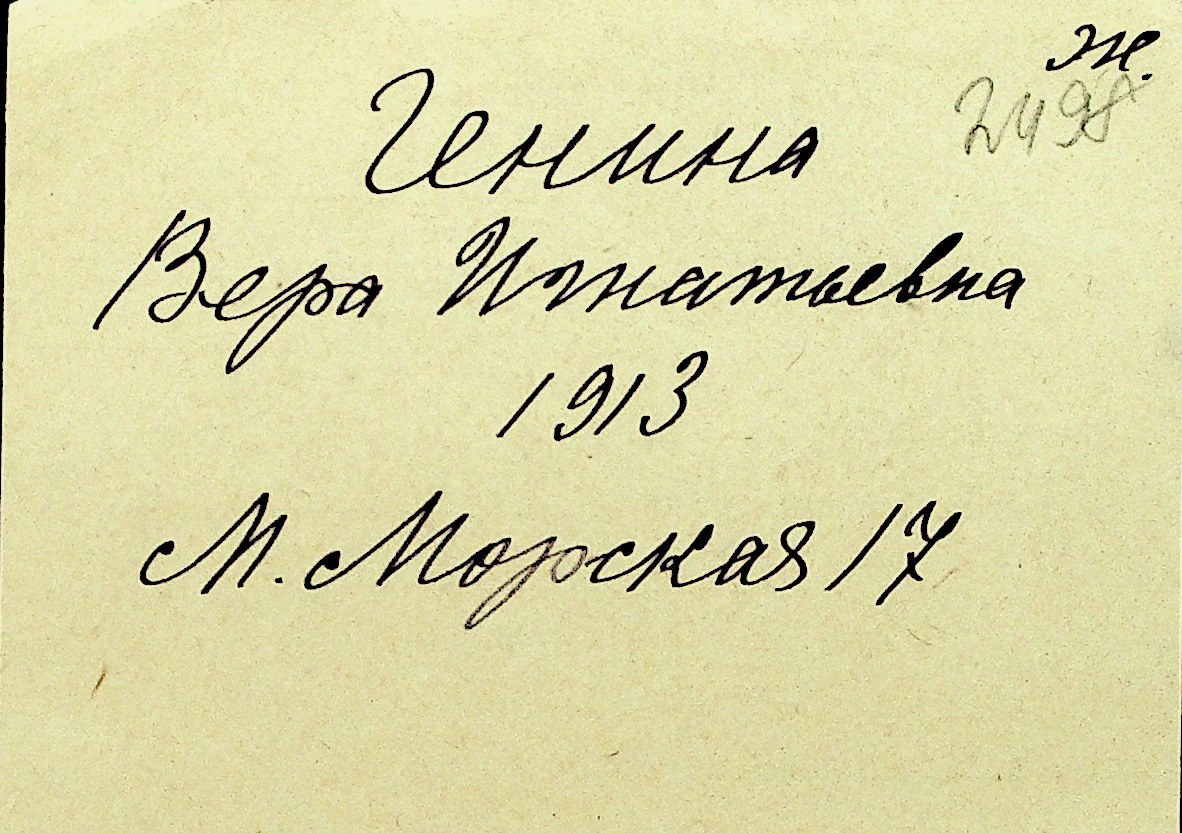 ж.
2498
Генина
Вера Игнатьевна
1913
М. Морская 17